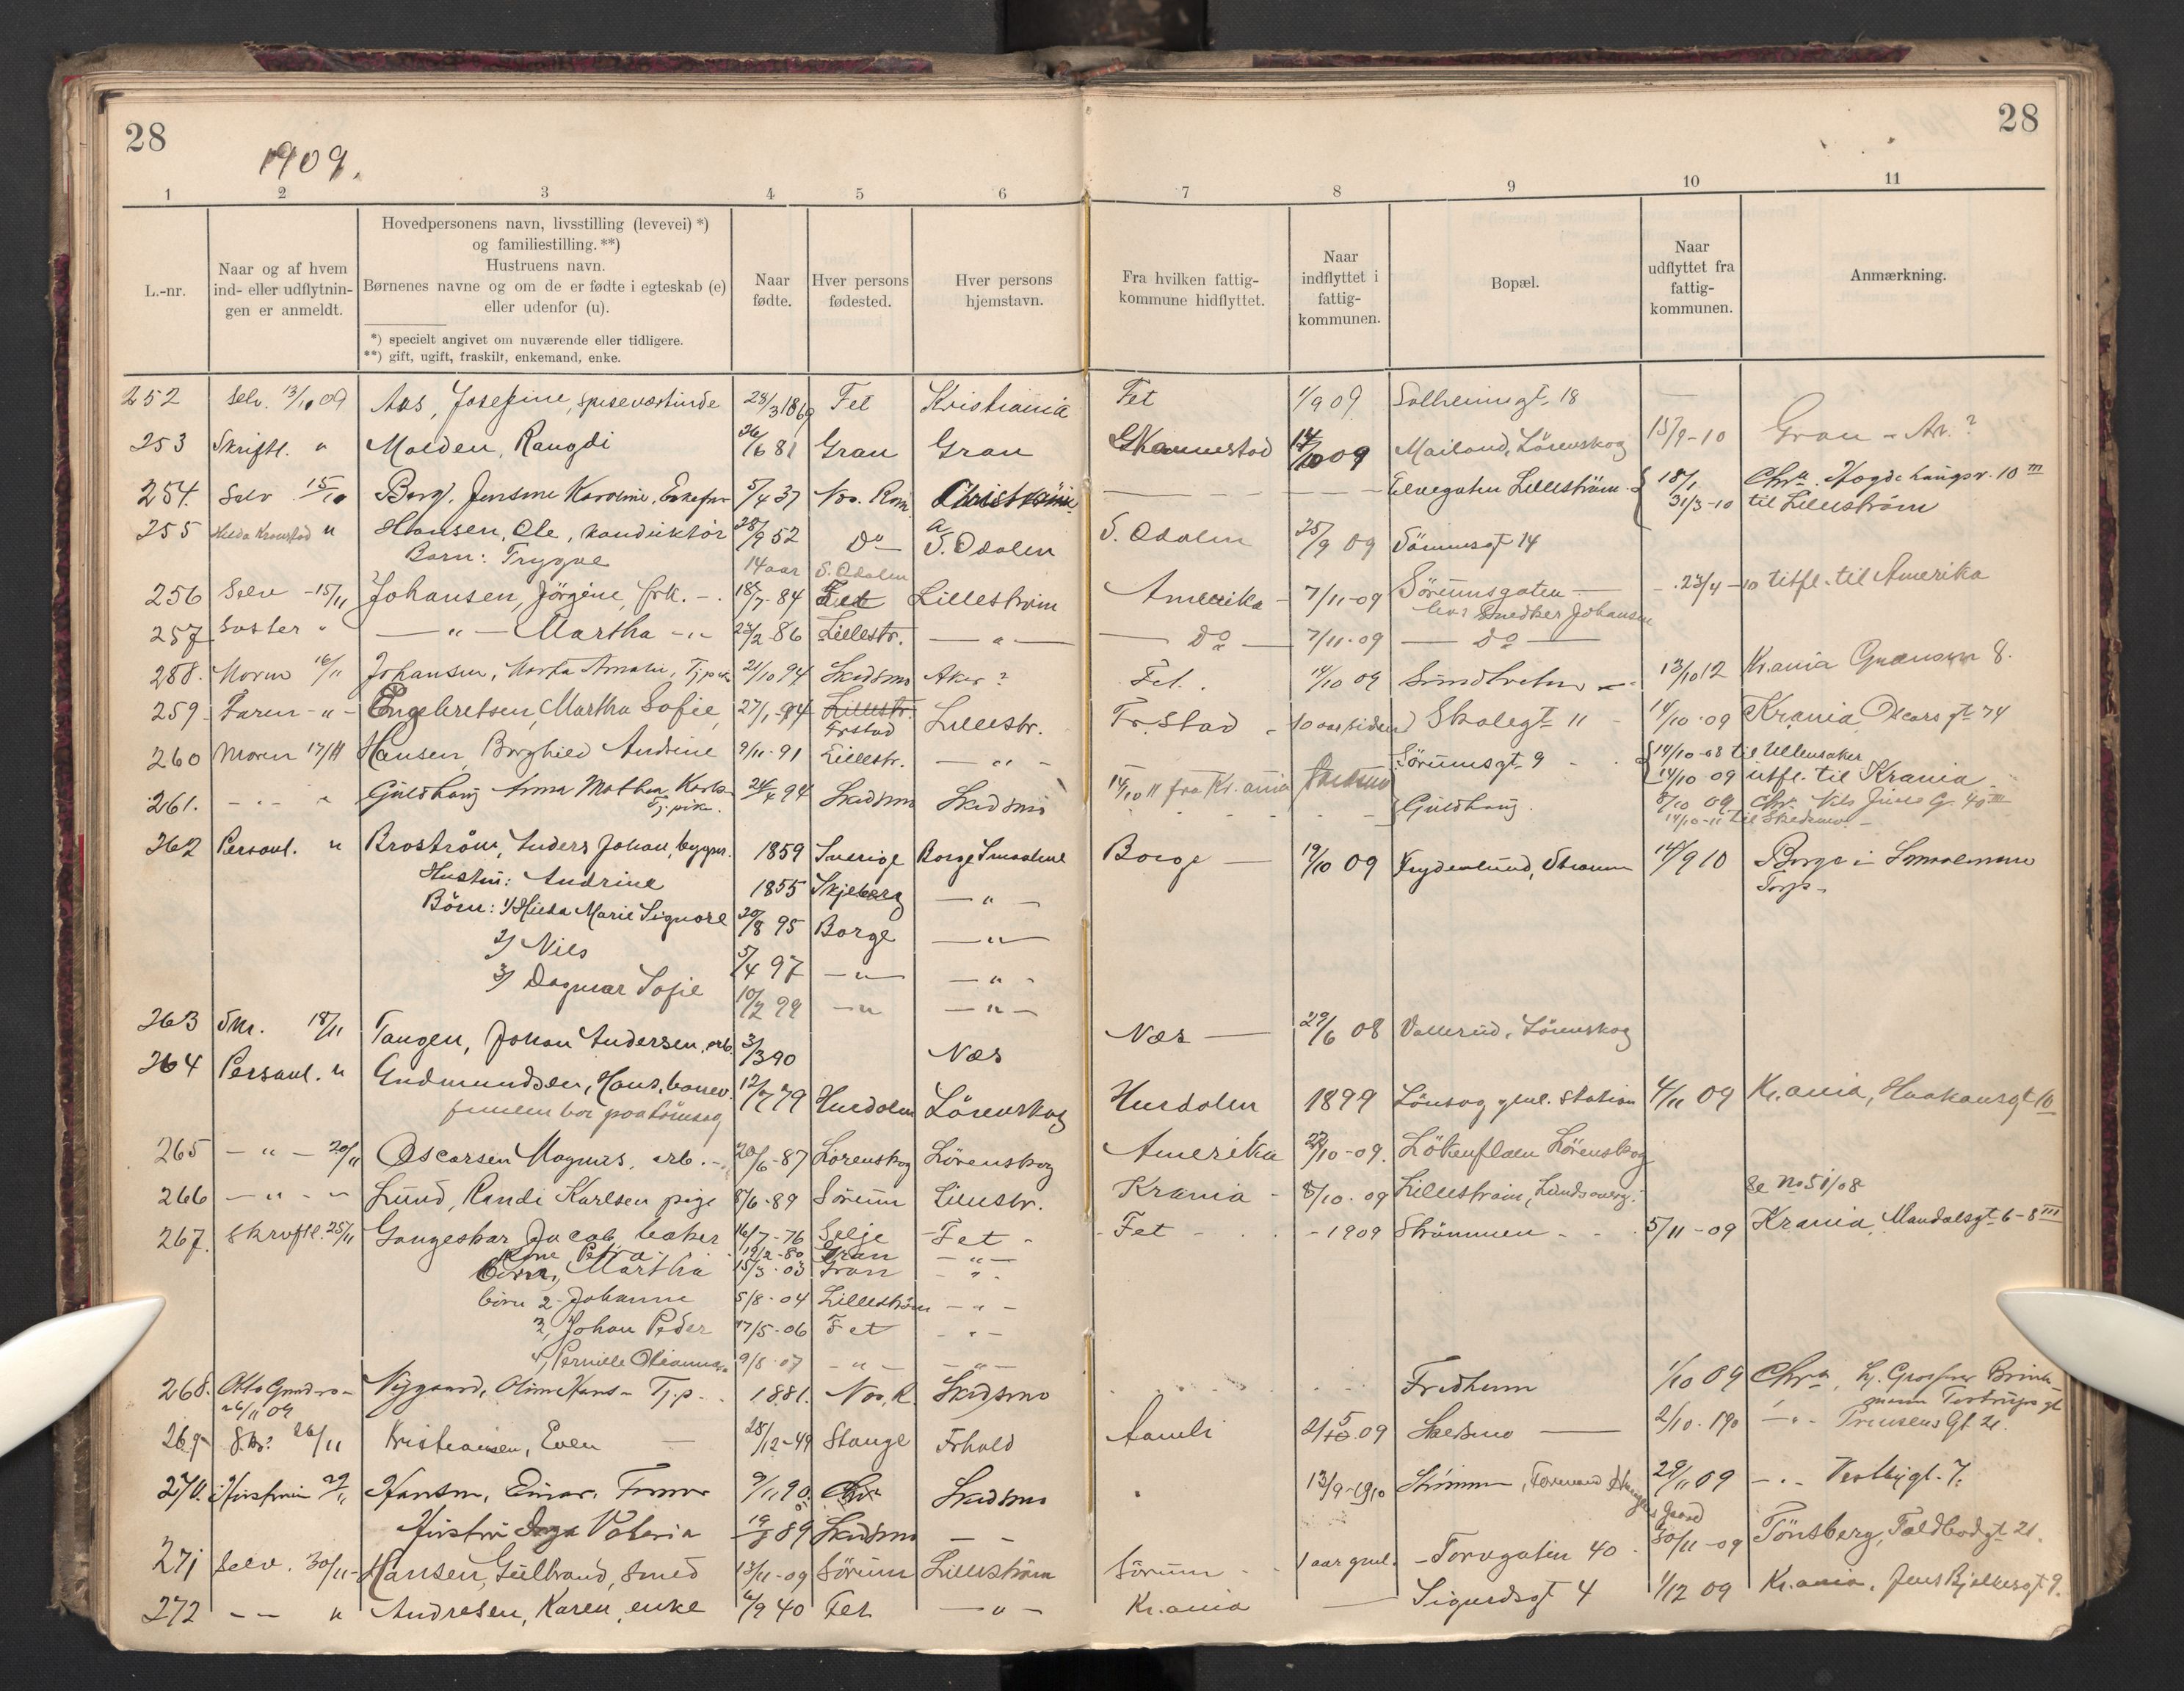 28
28
1909.
1 2 3 4 5 6 7 8 9 10 11
L.-nr.
Naar og af hvem
ind- eller udflytnin-
gen er anmeldt.
Hovedpersonens navn, livsstilling (levevei) *)
og familiestilling. **)
Hustruens navn.
Børnenes navne og om de er fødte i egteskab (e)
eller udenfor (u).
*) specielt angivet om nuværende eller tidligere.
**) gift, ugift, fraskilt, enkemand, enke.
Naar
fødte.
Hver persons
fødested.
Hver persons
hjemstavn.
Fra hvilken fattig-
kommune hidflyttet.
Naar
indflyttet i
fattig-
kommunen.
Bopæl.
Naar
udflyttet fra
fattig-
kommunen.
Anmærkning.
252 Selv. 13/10 09 Aas, Josefine, spiseværtinde 23/3 1869 Fet Kristiania Fet 1/9 09 Solheimsgt. 18 —
253 Skriftl. " Molden, Rangdi 26/6 81 Gran Gran 14/10 09 Mailand, Lörenskog 15/9-10 Gran
254. Selv 15/10 Berg, Jensine Karoline, 5/4 37 Nos. Rom. Christiania — — Elvegaten Lilleström 18/1 Chra. 10 III
31/3-10 til Lilleström
255 Hilda Kronstad " Hansen, Ole, konduktör 28/9 52 Do S. Odalen S. Odalen 25/9 09 Sörumsgt 14
Barn: Trygve 14 aar S. Odalen
256 Selv -15/11 Johansen, Jörgine, frk. - 18/7-84 Fet Lilleström Amerika - 7/11-09 Sörumsgaten 23/4-10 utfl. til Amerika
hos Snedker Johansen
257 Söster " — " — Martha - " 23/2-86 Lillestr. — " — — Do — 7/11-09 — Do —
258. Moren 16/11 Johansen, Marta Amalie, Tj.pike 21/10 94 Skedsmo Aker ? Fet. 14/10 09 13/10 12 Kr.ania 8.
259 Faren - " - Engebretsen, Martha Sofie, 27/1-94 Lillestr. Lillestr. Fr.stad - 10 aar siden Skolegt 11 - 14/10-09 Krania Oscarsgt 74
Frstad
260 Moren 17/11 Hansen, Borghild Andrine 9/11-91 Lillestr. — " - Sörumsgt. 9 - 14/10-08 til Ullensaker
14/10 09 utfl. til Krania
261. - - " Guldhaug Anna Mathea 24/4 94 Skedsmo Skedsmo 14/10 11 fra Kr.ania Guldhaug. 8/10 09 Chr. Nils Juels G. 40 III
Tj.pike. 14/10-11 til Skedsmo -
262 Personl. " Broström, Anders Johan, 1859 Sverige Borge Smaalene Borge — 19/10 09 Frydenlund, Strömmen 14/9 10 Borge i Smaalenene
Torp -
Hustru: Andrine 1855 Skjeberg — " —
Börn: 1/ Hilda Marie Signora 20/8 95 Borge — " —
2/ Nils 5/4 97 — " — — " -
3/ Dagmar Sofie 10/7 99 — " — " —
263 Skr. 18/11 Tangen, Johan Andersen, arb. 3/3 90 Næs Næs — 29/6 08 Vallerud, Lörenskog
264 Personl. " Gudmundsen, Hans, 12/7 79 Hurdalen Lörenskog Hurdalen 1899 Lönsag gml. station 4/11 09 Kr.ania, Haakonsgt 10
familien bor paa Lönsag
265 — " — 20/11 Oscarsen Magnus, arb. - 20/6-87 Lörenskog Lörenskog Amerika 27/10-09. Lökenflaen Lörenskog
266 — " — " Lund, Randi Karlsen pige 8/6-89 Sörum Lillestr. Krania - 8/10-09 Lilleström, Se No 51/08
267. Skriftl. 25/11 Gangeskar Jacob baker 16/7-76 Selje Fet - - Fet - - 1909 Strömmen - - 5/11-09 Krania, Mandalsgt 6-8 III
Kone Petra - 19/2-80 Gran — " —
Börn 1, Martha 15/3-03 Gran - " -
börn 2 - Johanne 5/8-04 Lilleström — " -
3, Johan Peder 17/5-06 Fet - " -
4, Pernille 9/8-07 - " - — " —
268. Otto Nygaard, Oline Hans - Tj.p. 1881. Nos. R. Skedsmo Fredheim 1/10 09 Chra,
26/11 09
269 Skr. 26/11 Kristiansen, Even — 28/12-49 Stange Skedsmo — 2/10-190 - " - Prinsens Gt. 21.
270. Hustruen Hansen, Einar, 9/11 90. Chra Skedsmo 13/9-1910 Strömmen, Formand 29/11 09 - " - Vestbygt. 7.
Gaard
Hustru Inga Valeria 89 Skedsmo — -
271 Selv. 30/11 - Hansen, Gulbrand, Smed 13/11-09 Sörum Lilleström Sörum - - 1 aar gml. - Torvgaten 40 - 30/11-09 Tönsberg, Foldbodgt 21.
272 — — " Andresen, Karen, enke 6/9 40 Fet — " — Kr.ania — Sigurdsgt 4 1/12 09 Kr.ania, Jens Bjelkesgt 9.